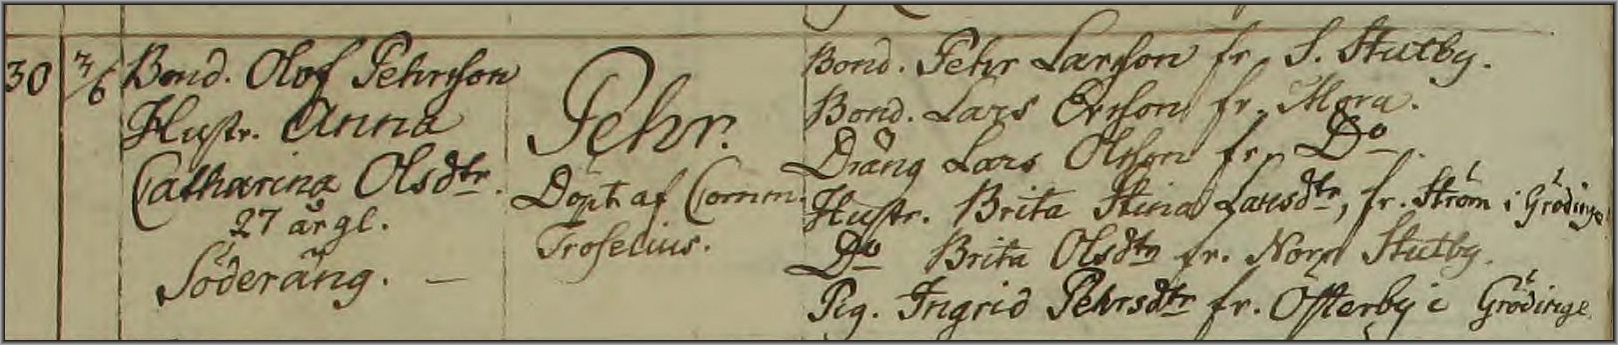 30
7/6
Bond. Olof Pehrsson
Hustr. Anna
Catharina Olsdtr.
27 år gl.
Söderäng. —
Pehr.
Döpt af Comm.
Troselius.
Bond. Pehr Larsson fr. S. Stutby.
Bond. Lars Ersson fr. Mora.
Dräng Lars Olsson fr. Do.
Hustr. Brita Stina Larsdtr, fr. Ström i Grödinge
Do Brita Olsdtr fr. Norr Stutby.
Pig. Ingrid Pehrsdtr fr. Österby i Grödinge.